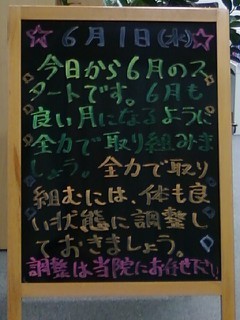 ☆6月1日(水)☆
今日から6月のス
タートです。6月も
良い月になるように
全力で取り組みま
しょう。全力で取り
組むには、体も良
い状態に調整し
ておきましょう。
調整は当院にお任せ下さい